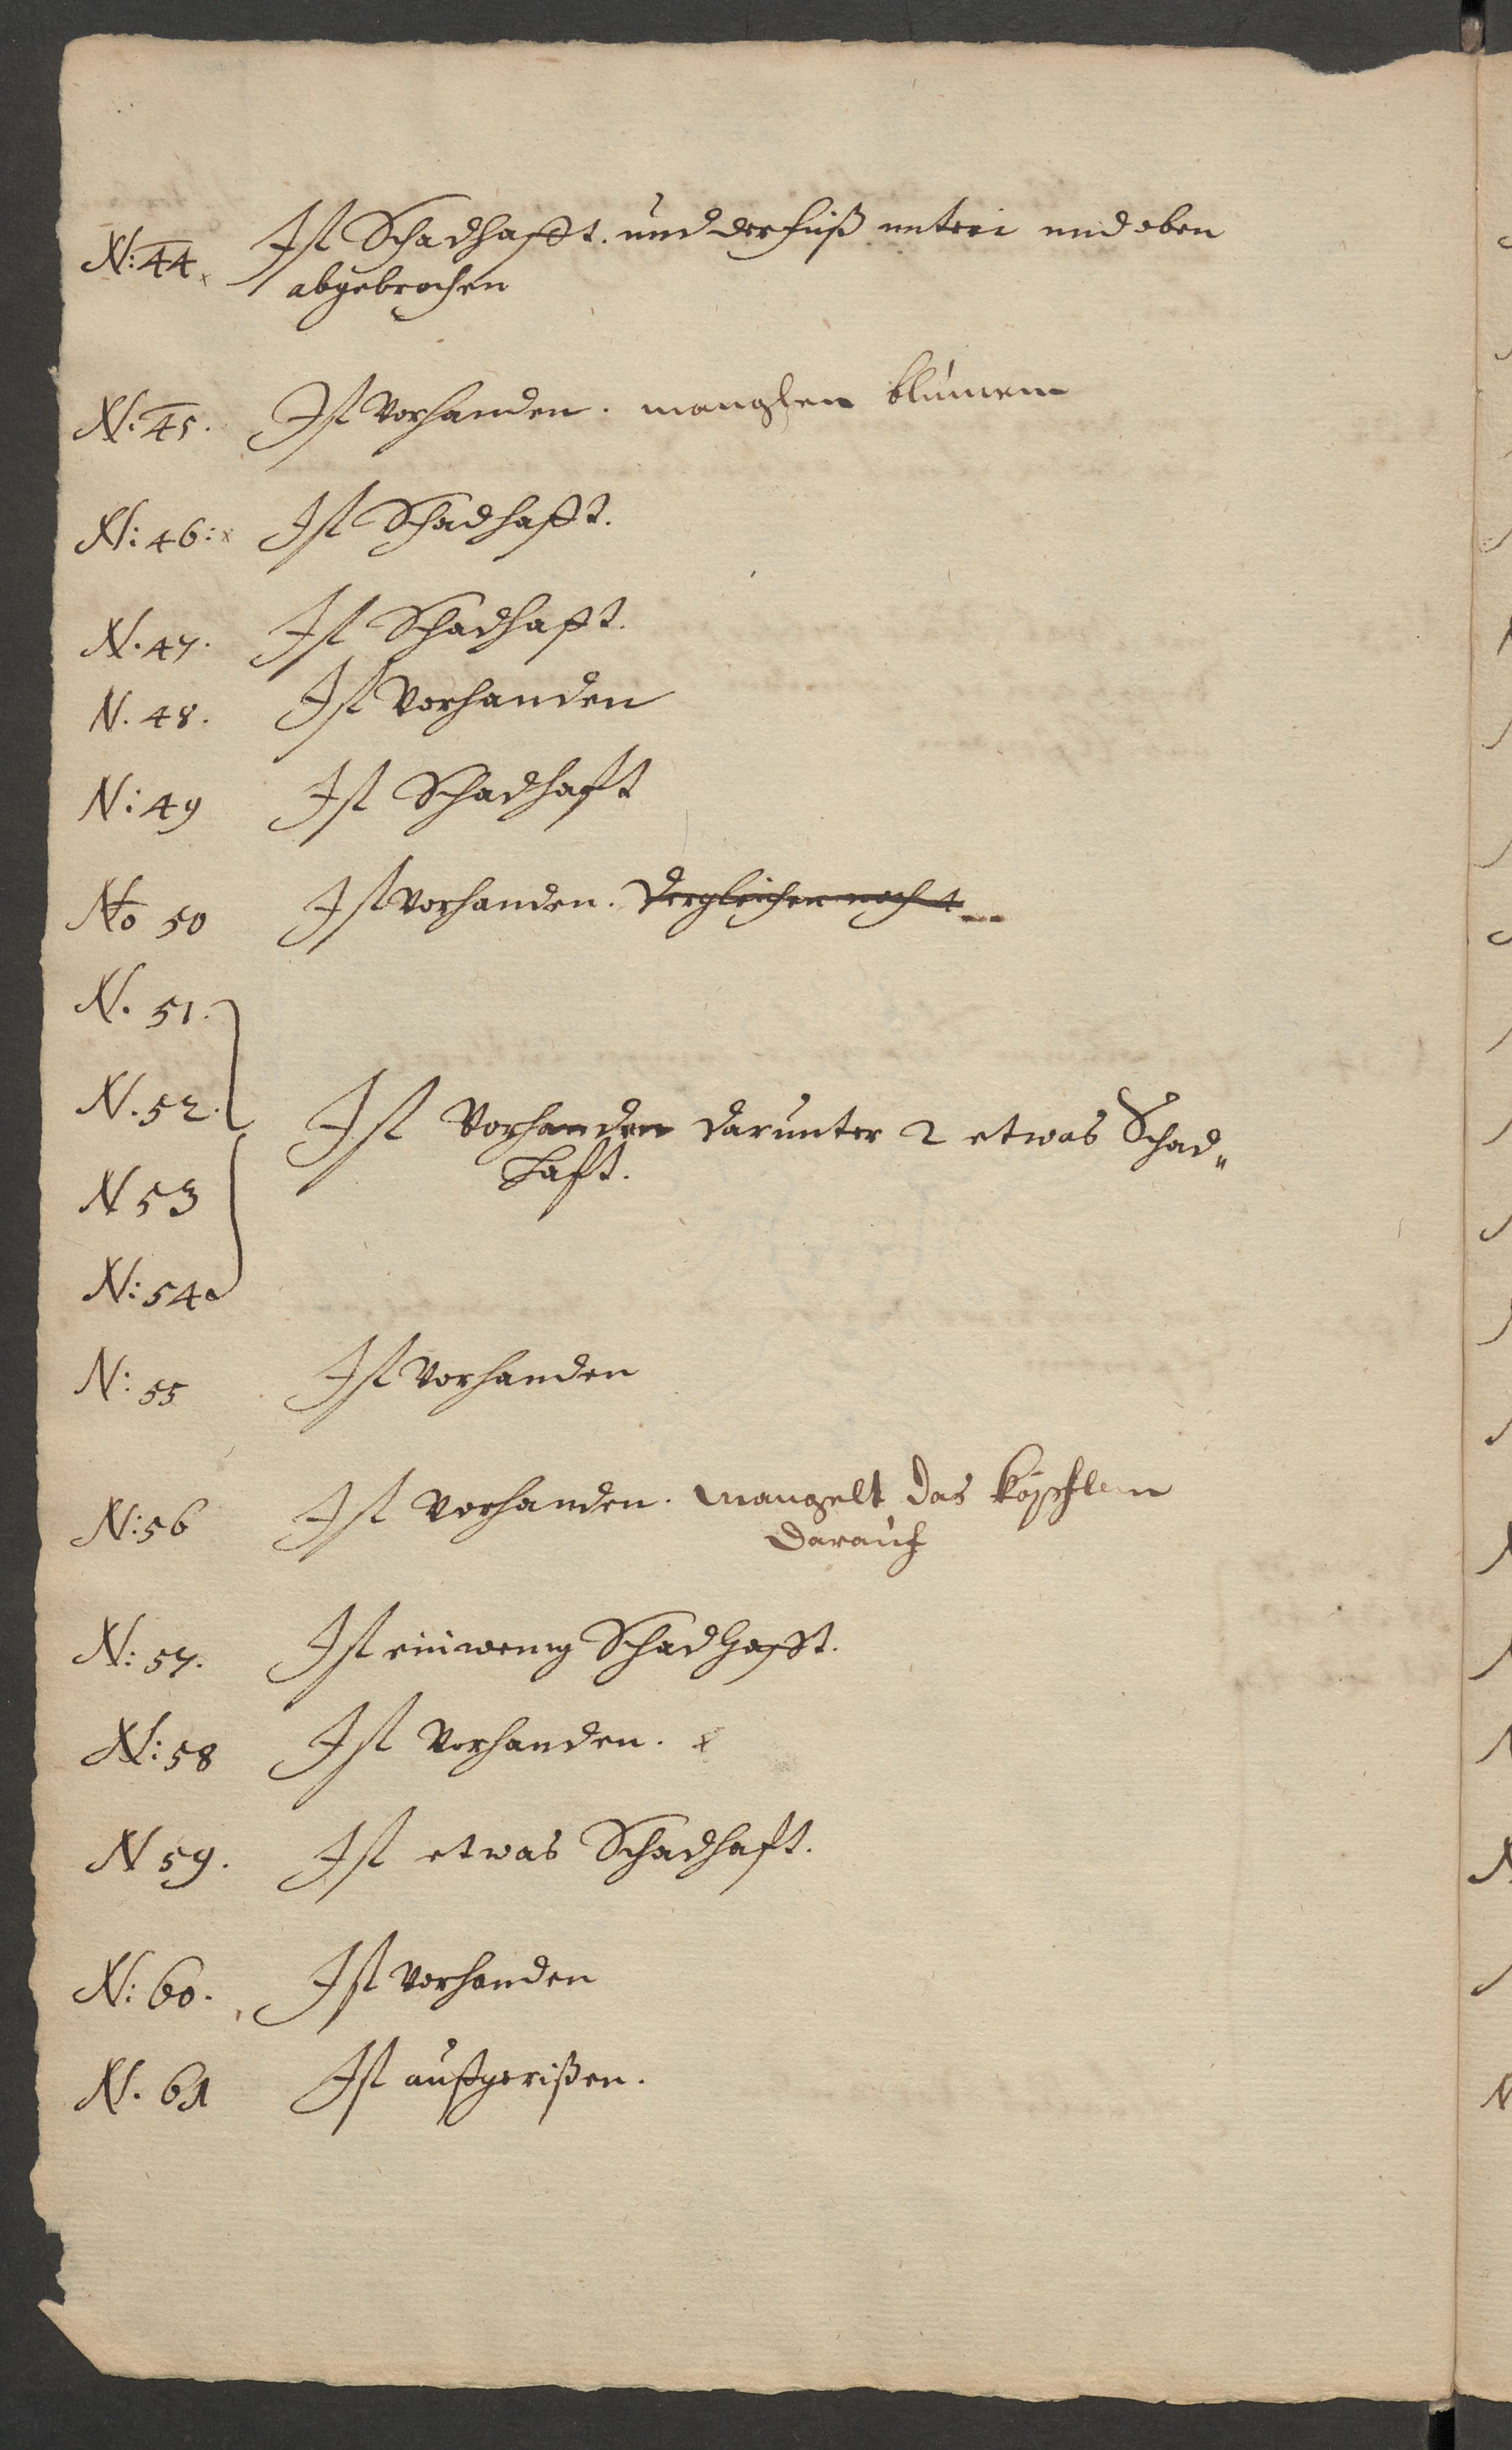 N: 44. Ist Schadhafft. und der fuß unten und oben
abgebrochen
N: 45. Ist Vorhanden. manglen blumen
N: 46: Ist Schadhafft.
N. 47. Ist Schadhafft.
N. 48. Ist Vorhanden
N: 49 Ist Schadhaft
No 50 Ist Vorhanden. Dergleichen noch 4
N. 51.
N. 52. Ist Vorhanden darunter 2 etwas Schad„
haft.
N 53
N: 54
N: 55 Ist Vorhanden
N: 56 Ist Vorhanden. mangelt das köpflein
darauf
N: 57. Ist ein wenig Schadhafft.
N: 58 Ist Vorhanden. x
N 59. Ist etwas Schadhaft.
N: 60. Ist Vorhanden
N. 61 Ist außgerißen.